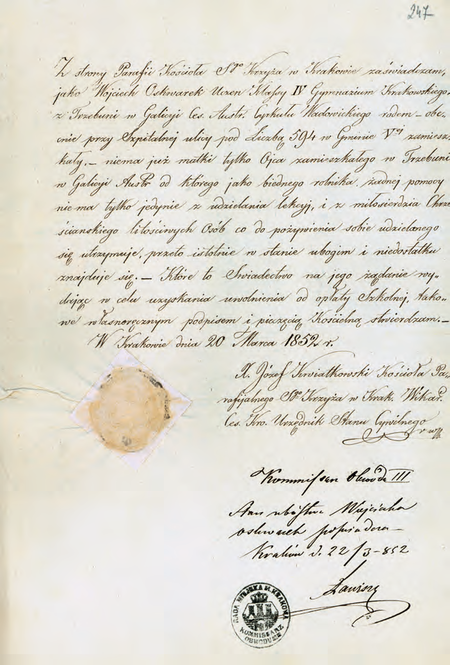 247
Z strony Parafii Kościoła Sgo Krzyża w Krakowie zaświadczam,
jako Wojciech Oskwarek Uczeń Klassy IV Gymnazium Krakowskiego,
z Trzebuni w Galicyi Ces. Austr. Cyrkułu Wadowickiego rodem – obe-
cnie przy Szpitalnej ulicy pod Liczbą 594 w Gminie Vtej zamiesz-
kały, – niema już matki tylko Ojca zamieszkałego w Trzebuni
w Galicyi Austr. od którego jako biednego rolnika, żadnej pomocy
nie ma tylko jedynie z udzielania lekcyj, i z miłosierdzia Chrze
ściańskiego litościwych Osób co do pożywienia sobie udzielanego
się utrzymuje, przeto istotnie w stanie ubogim i niedostatku
znajduje się. – Które to Swiadectwo na jego żądanie wy-
dając w celu uzyskania uwolnienia od opłaty Szkolnej, tako-
we własnoręcznym podpisem i pieczęcią Kościelną stwierdzam. –
W Krakowie dnia 20 Marca 1852 r.
X. Józef Kwiatkowski Kościoła Pa-
rafijalnego Sgo Krzyża w Krak. Wikar.
Ces. Kro. Urzędnik Stanu Cywilnego
Kommissarz Obwodu III
Stan ubóstwa Wojciecha
poświadcza –
Kraków d. 22/3 – 852
RADA MIEJSKA M. KRAKOWA
KOMMISSARZ
OBWODOWY